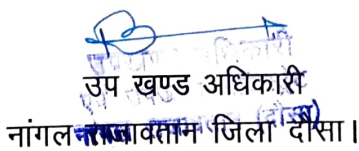 उप खण्ड अधिकारी
नांगल राजावतान जिला दौसा।